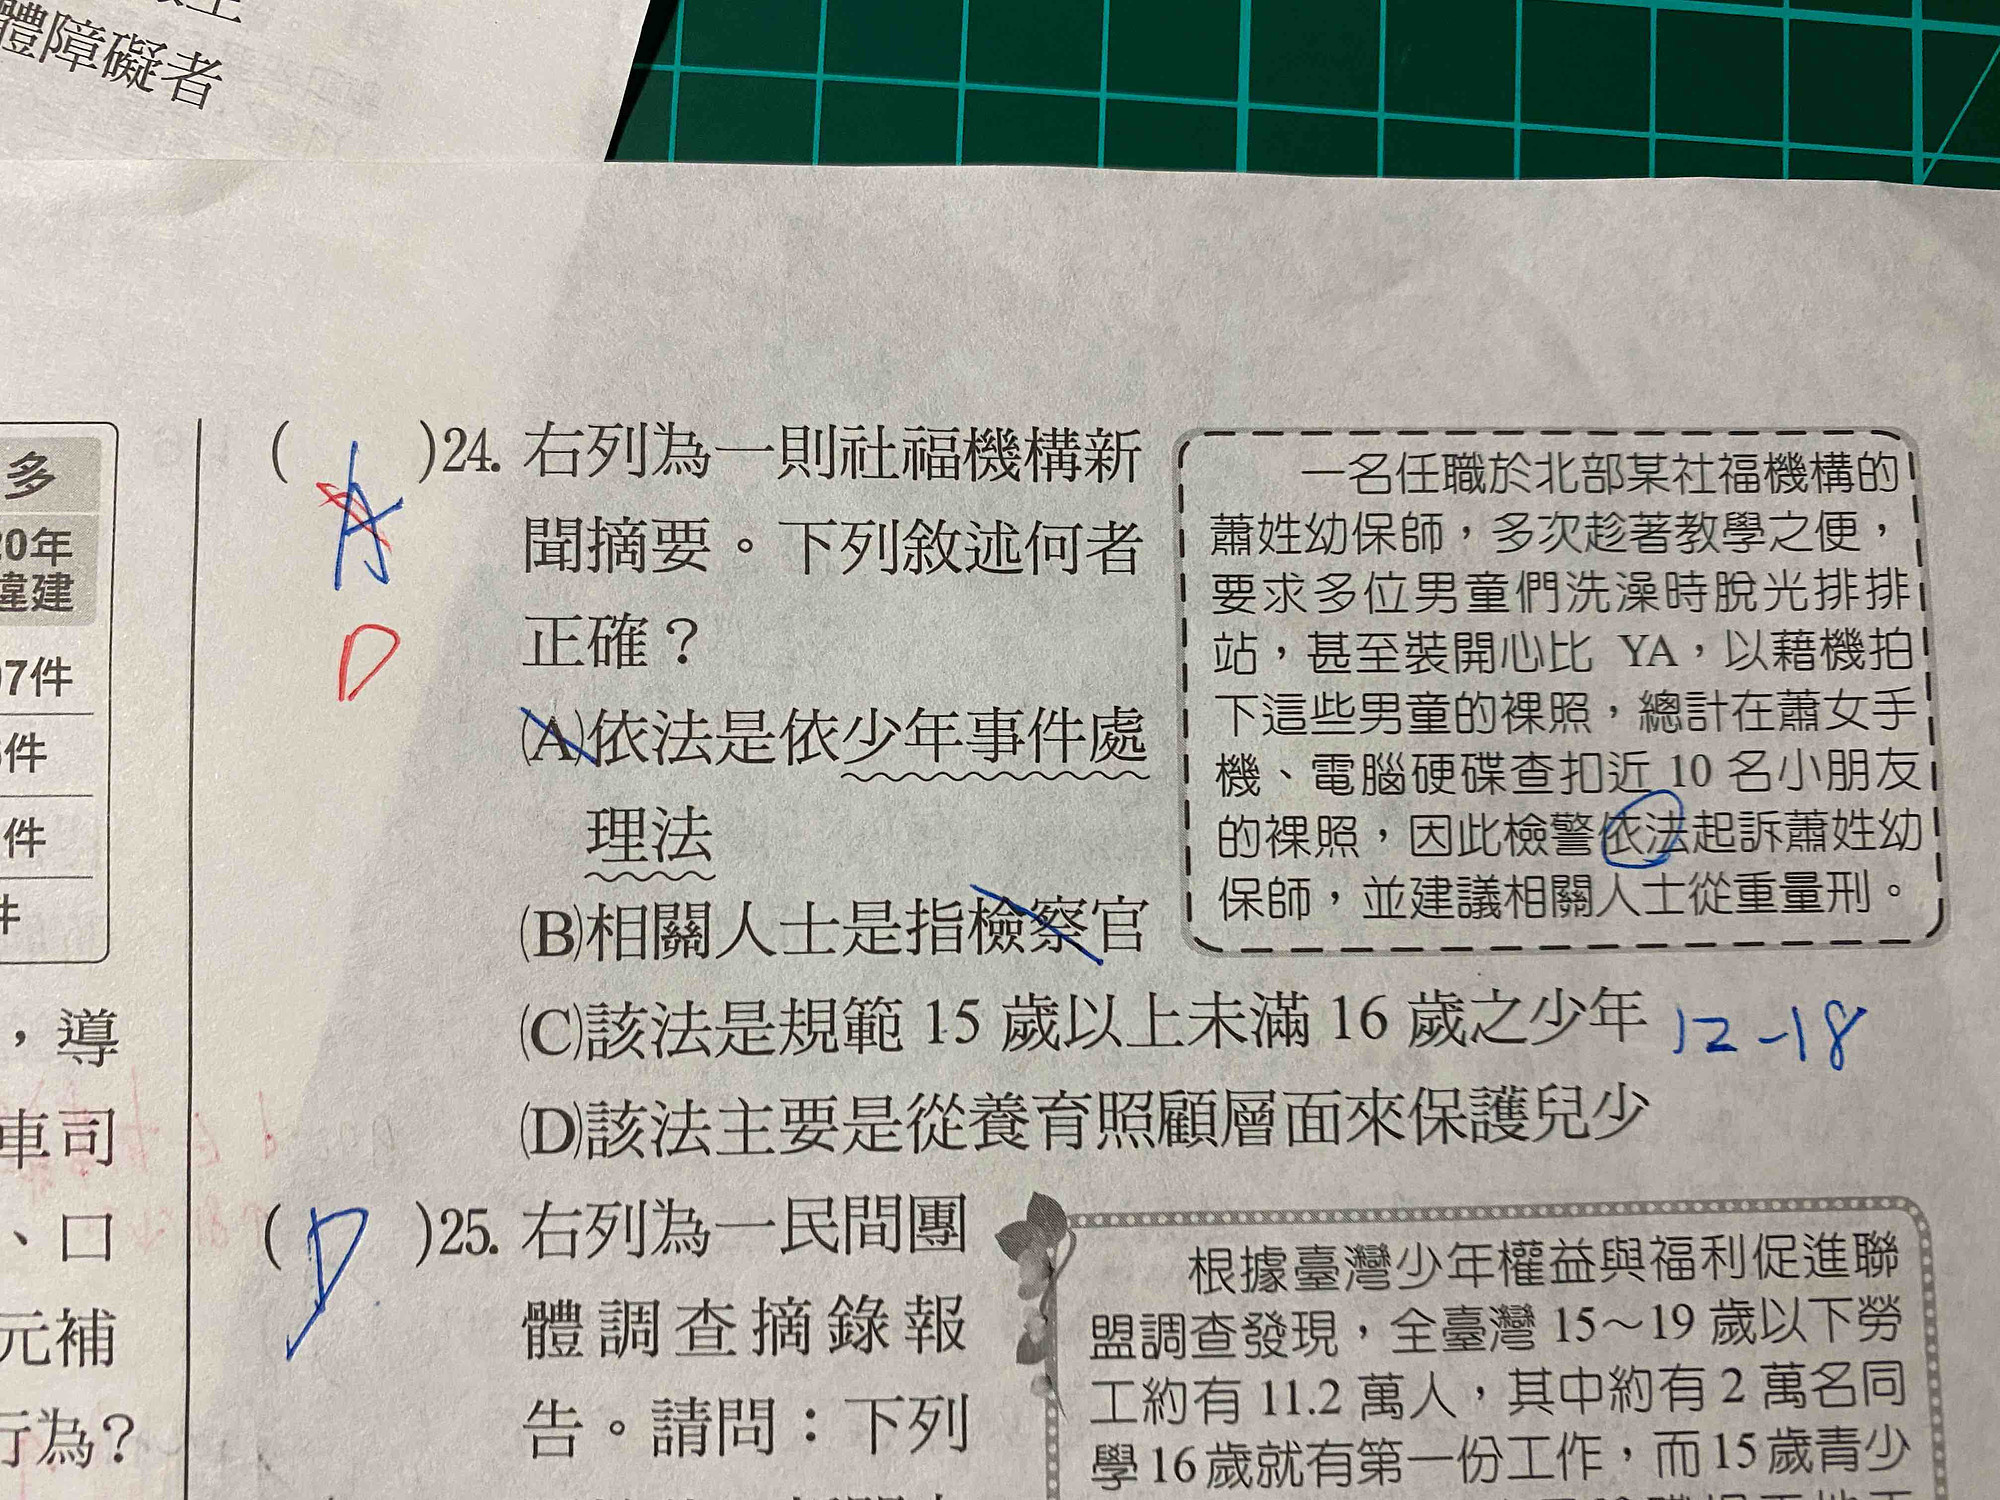 體障礙者
多
20年
違建
07件
件
件
件
，導
車司
、口
元補
行為？
(A)24. 右列為一則社福機構新
聞摘要。下列敘述何者
正確？
D
(A)依法是依少年事件處
理法
(B)相關人士是指檢察官
(C)該法是規範 15 歲以上未滿 16 歲之少年 12-18
(D)該法主要是從養育照顧層面來保護兒少
一名任職於北部某社福機構的
蕭姓幼保師，多次趁著教學之便，
要求多位男童們洗澡時脫光排排
站，甚至裝開心比 YA，以藉機拍
下這些男童的裸照，總計在蕭女手
機、電腦硬碟查扣近 10 名小朋友
的裸照，因此檢警依法起訴蕭姓幼
保師，並建議相關人士從重量刑。
(D)25. 右列為一民間團
體調查摘錄報
告。請問：下列
根據臺灣少年權益與福利促進聯
盟調查發現，全臺灣 15～19 歲以下勞
工約有 11.2 萬人，其中約有 2 萬名同
學 16 歲就有第一份工作，而 15 歲青少